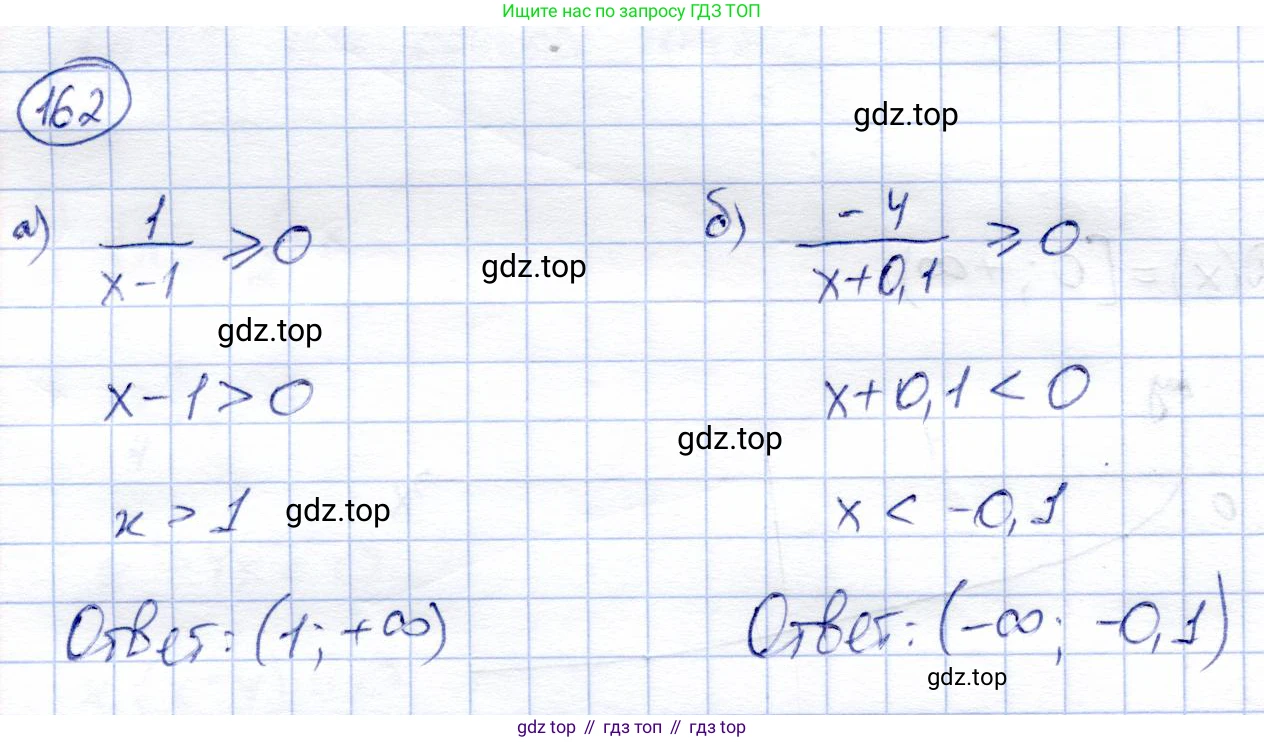 Ищите нас по запросу ГДЗ ТОП
162
gdz.top
а) 1/(x-1) ⩾ 0
б) -4/(x+0,1) ⩾ 0
gdz.top
gdz.top
x-1 > 0
x+0,1 < 0
gdz.top
x > 1
gdz.top
x < -0,1
Ответ: (1; +∞)
Ответ: (-∞; -0,1)
gdz.top
gdz top // гдз топ // гдз top